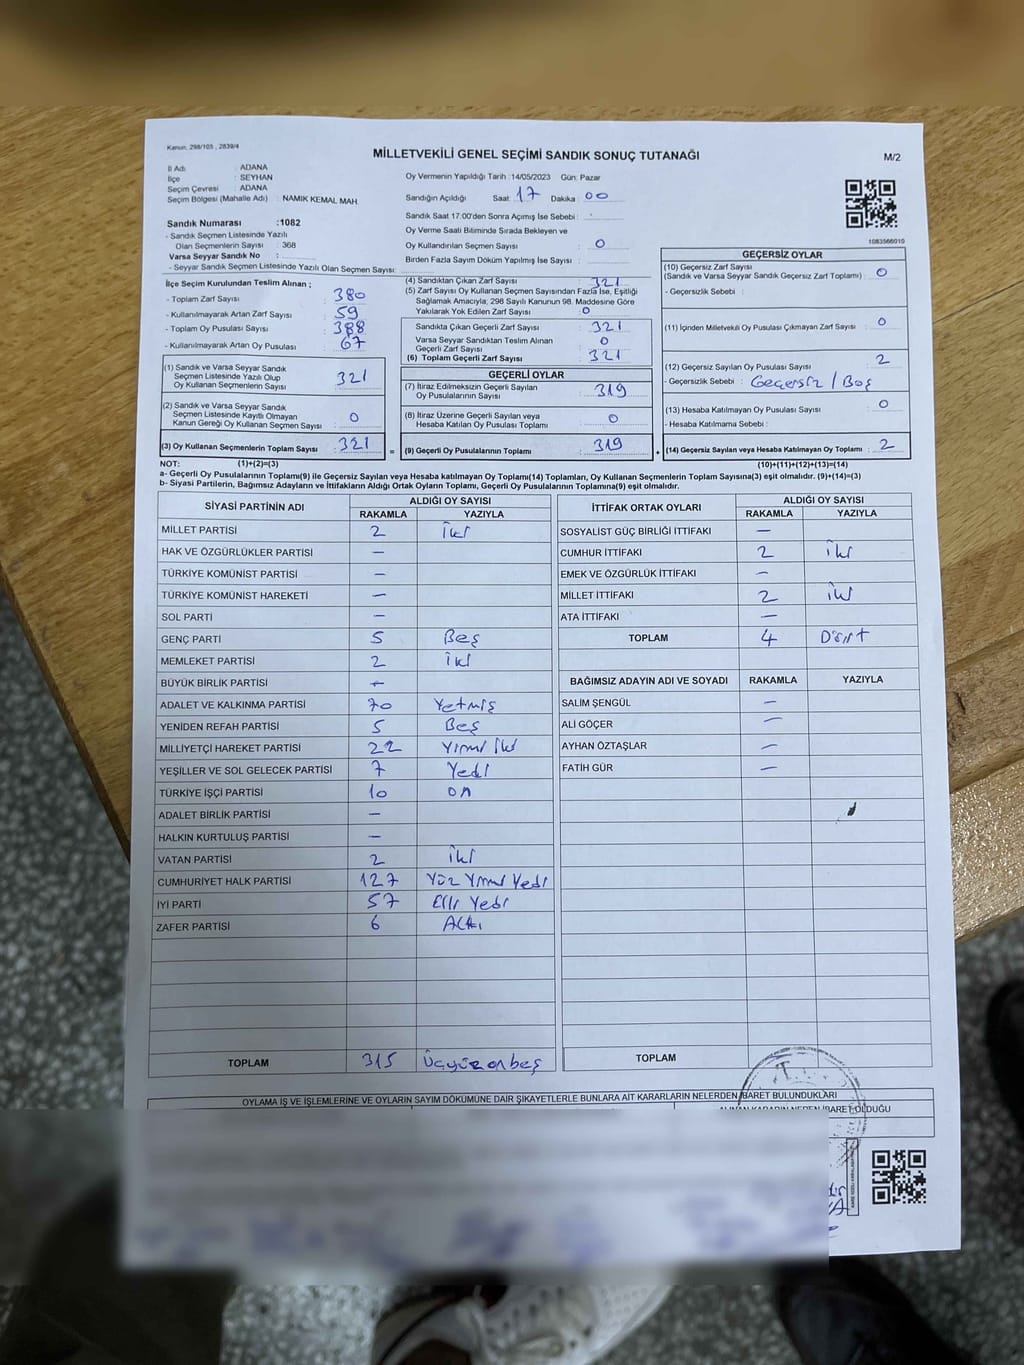 Kanun, 298/105 , 2839/4
MİLLETVEKİLİ GENEL SEÇİMİ SANDIK SONUÇ TUTANAĞI
M/2
İl Adı : ADANA
İlçe : SEYHAN
Seçim Çevresi : ADANA
Seçim Bölgesi (Mahalle Adı) : NAMIK KEMAL MAH.
Sandık Numarası :1082
- Sandık Seçmen Listesinde Yazılı
Olan Seçmenlerin Sayısı : 368
Varsa Seyyar Sandık No :
- Seyyar Sandık Seçmen Listesinde Yazılı Olan Seçmen Sayısı:
Oy Vermenin Yapıldığı Tarih :14/05/2023 Gün: Pazar
Sandığın Açıldığı Saat: 17 Dakika : 00
Sandık Saat 17:00'den Sonra Açımış İse Sebebi :
Oy Verme Saati Bitiminde Sırada Bekleyen ve
Oy Kullandırılan Seçmen Sayısı : 0
Birden Fazla Sayım Döküm Yapılmış İse Sayısı :
1083566010
İlçe Seçim Kurulundan Teslim Alınan ;
- Toplam Zarf Sayısı : 380
- Kullanılmayarak Artan Zarf Sayısı : 59
- Toplam Oy Pusulası Sayısı : 388
- Kullanılmayarak Artan Oy Pusulası : 67
(1) Sandık ve Varsa Seyyar Sandık
Seçmen Listesinde Yazılı Olup
Oy Kullanan Seçmenlerin Sayısı : 321
(2) Sandık ve Varsa Seyyar Sandık
Seçmen Listesinde Kayıtlı Olmayan
Kanun Gereği Oy Kullanan Seçmen Sayısı : 0
(3) Oy Kullanan Seçmenlerin Toplam Sayısı : 321
(4) Sandıktan Çıkan Zarf Sayısı : 321
(5) Zarf Sayısı Oy Kullanan Seçmen Sayısından Fazla İse, Eşitliği
Sağlamak Amacıyla; 298 Sayılı Kanunun 98. Maddesine Göre
Yakılarak Yok Edilen Zarf Sayısı : 0
Sandıkta Çıkan Geçerli Zarf Sayısı : 321
Varsa Seyyar Sandıktan Teslim Alınan
Geçerli Zarf Sayısı : 0
(6) Toplam Geçerli Zarf Sayısı : 321
GEÇERLİ OYLAR
(7) İtiraz Edilmeksizin Geçerli Sayılan
Oy Pusulalarının Sayısı : 319
(8) İtiraz Üzerine Geçerli Sayılan veya
Hesaba Katılan Oy Pusulası Toplamı : 0
= (9) Geçerli Oy Pusulalarının Toplamı : 319
GEÇERSİZ OYLAR
(10) Geçersiz Zarf Sayısı
(Sandık ve Varsa Seyyar Sandık Geçersiz Zarf Toplamı) : 0
- Geçersizlik Sebebi :
(11) İçinden Milletvekili Oy Pusulası Çıkmayan Zarf Sayısı : 0
(12) Geçersiz Sayılan Oy Pusulası Sayısı : 2
- Geçersizlik Sebebi : Geçersiz / Boş
(13) Hesaba Katılmayan Oy Pusulası Sayısı : 0
- Hesaba Katılmama Sebebi :
+ (14) Geçersiz Sayılan veya Hesaba Katılmayan Oy Toplamı : 2
NOT: (1)+(2)=(3) (10)+(11)+(12)+(13)=(14)
a- Geçerli Oy Pusulalarının Toplamı(9) ile Geçersiz Sayılan veya Hesaba katılmayan Oy Toplamı(14) Toplamları, Oy Kullanan Seçmenlerin Toplam Sayısına(3) eşit olmalıdır. (9)+(14)=(3)
b- Siyasi Partilerin, Bağımsız Adayların ve İttifakların Aldığı Ortak Oyların Toplamı, Geçerli Oy Pusulalarının Toplamına(9) eşit olmalıdır.
SİYASİ PARTİNİN ADI ALDIĞI OY SAYISI
RAKAMLA YAZIYLA
MİLLET PARTİSİ 2 İki
HAK VE ÖZGÜRLÜKLER PARTİSİ —
TÜRKİYE KOMÜNİST PARTİSİ —
TÜRKİYE KOMÜNİST HAREKETİ —
SOL PARTİ —
GENÇ PARTİ 5 Beş
MEMLEKET PARTİSİ 2 İki
BÜYÜK BİRLİK PARTİSİ —
ADALET VE KALKINMA PARTİSİ 70 Yetmiş
YENİDEN REFAH PARTİSİ 5 Beş
MİLLİYETÇİ HAREKET PARTİSİ 22 Yirmi İki
YEŞİLLER VE SOL GELECEK PARTİSİ 7 Yedi
TÜRKİYE İŞÇİ PARTİSİ 10 on
ADALET BİRLİK PARTİSİ —
HALKIN KURTULUŞ PARTİSİ —
VATAN PARTİSİ 2 İki
CUMHURİYET HALK PARTİSİ 127 Yüz Yirmi Yedi
İYİ PARTİ 57 Elli Yedi
ZAFER PARTİSİ 6 Altı
TOPLAM 315 Üçyüz onbeş
İTTİFAK ORTAK OYLARI ALDIĞI OY SAYISI
RAKAMLA YAZIYLA
SOSYALİST GÜÇ BİRLİĞİ İTTİFAKI —
CUMHUR İTTİFAKI 2 İki
EMEK VE ÖZGÜRLÜK İTTİFAKI —
MİLLET İTTİFAKI 2 İki
ATA İTTİFAKI —
TOPLAM 4 Dört
BAĞIMSIZ ADAYIN ADI VE SOYADI RAKAMLA YAZIYLA
SALİM ŞENGÜL —
ALİ GÖÇER —
AYHAN ÖZTAŞLAR —
FATİH GÜR —
TOPLAM
OYLAMA İŞ VE İŞLEMLERİNE VE OYLARIN SAYIM DÖKÜMÜNE DAİR ŞİKAYETLERLE BUNLARA AİT KARARLARIN NELERDEN İBARET BULUNDUKLARI
ALINAN KARARIN NEDEN İBARET OLDUĞU